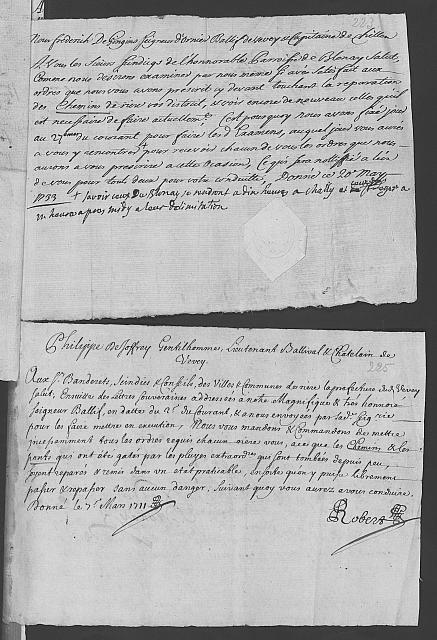 223
Nous Frederich De Gingins Seigneur d'Ornier Ballif de Vevey & Capitaine de Chillon
A Vous les Sieurs Sindigs de l'honnorable Parroisse de Blonay Salut,
Comme nous desirons examiner par nous mêmes si avés satisfait aux
ordres que nous vous avons prescrit cy devant touchant la reparation
des Chemins de rière vos distroit, & voir encore de nouveau celles qu'il
est necessaire de faire actuellemt. C'est pourquoy nous avons fixé jour
au 27eme du courant pour faire led Examens, auquel jour vous aurés
a vous y rencontrer + pour recevoir chacun de vous les ordres que nous
aurons a vous prescrire a cette occasion, Ce qui sera nottifié a lieu
de vous pour tous deux pour votre conduitte, Donné ce 20e May
1733 + Savoir ceux de Blonay se rendront a dix heures a Chally et a
un heure apres midy a leur delimitation
225
Philippe De Joffrey Gentilhomme, Lieutenant Ballival & Chatelain de
Vevey.
Aux Srs Banderets, Scindics & Conseils, des Villes & Communes derriere la prefecture dud Vevey
Salut, Ensuitte des lettres souveraines addressées a notre Magnifique & très honnoré
Seigneur Ballif, en datte du 2e du Courant, & a nous envoyées par lad Seigrie
pour les faire mettre en execution; Nous vous mandons & Commandons de mettre
incessamment tous les ordres requis chacun riere vous, a ce que les Chemins & les
ponts qui ont été gatés par les pluyes extraordres qui sont tombées depuis peu,
soyent reparés & remis dans un état pratiquable, En sorte qu'on y puisse librement
passer & repasser sans aucun danger. Suivant quoy vous aurez a vous conduire.
Donné le 7e Mars 1711
Robert